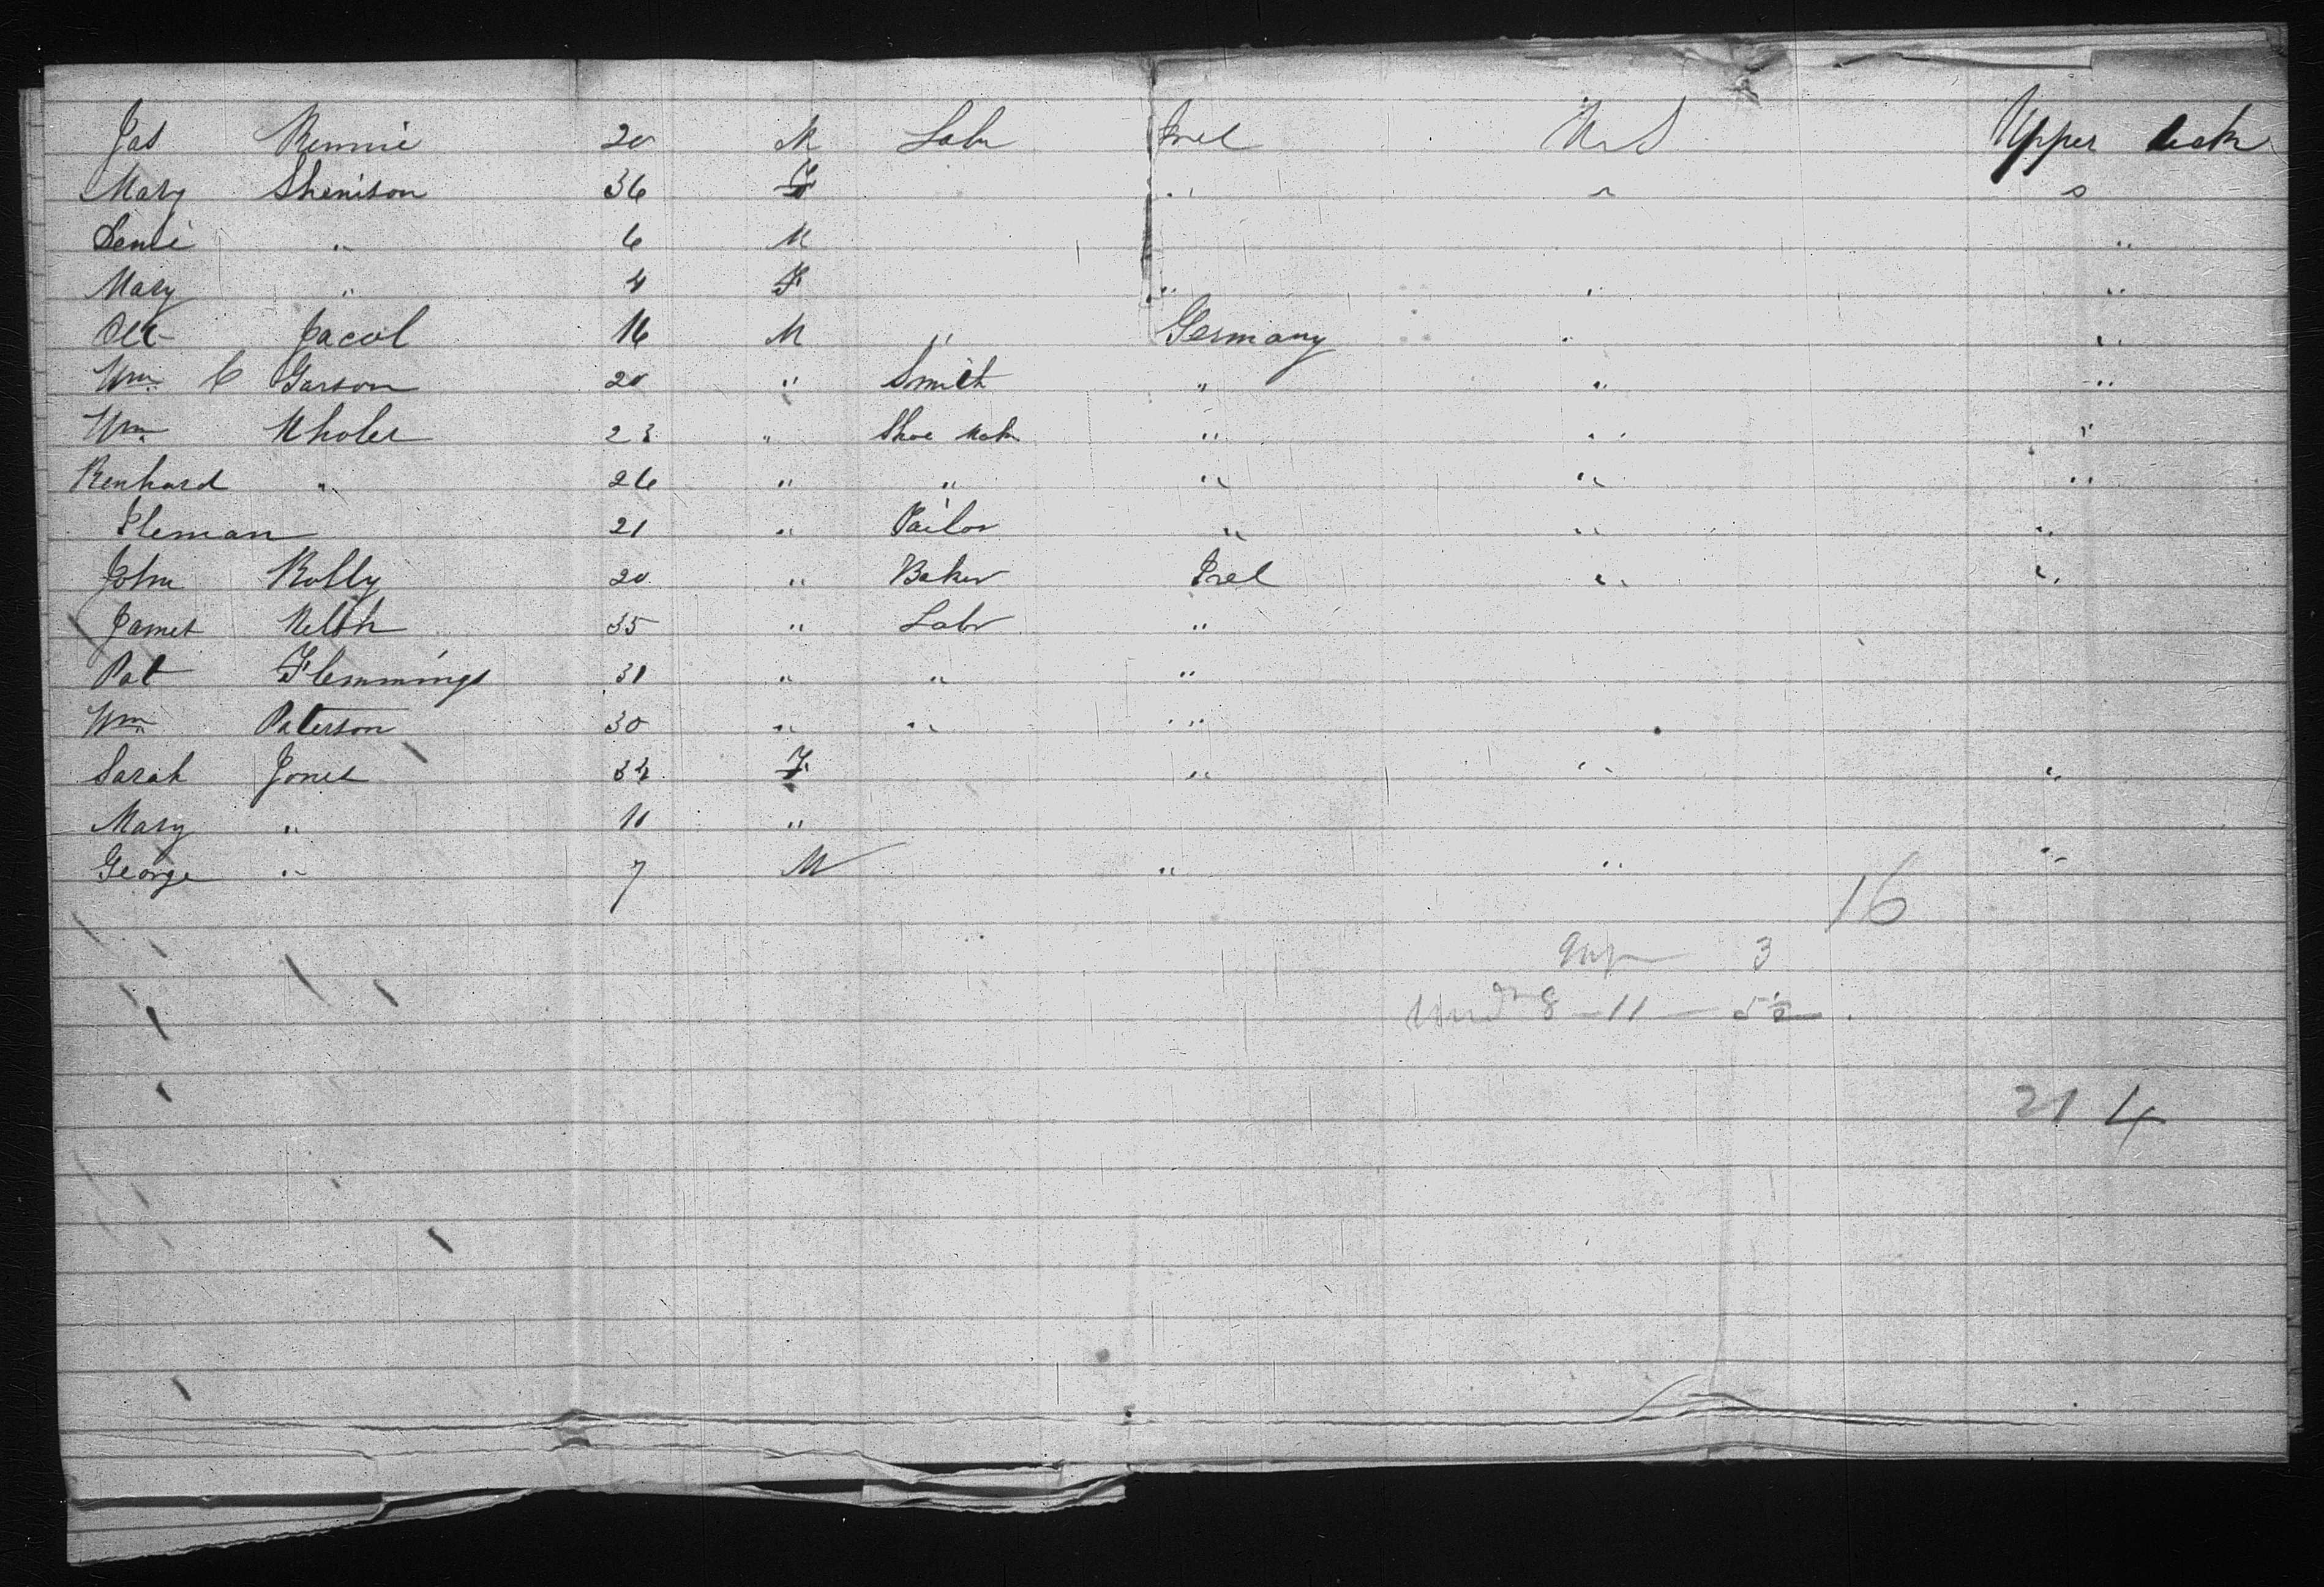 Jas Rennie 20 M Labr Irel U S Upper deck
Mary Shenison 36 F " " "
" 6 M "
Mary " 4 F " " "
Jacob 16 M " Germany " "
Wm C Garson 20 " Smith " " "
Wm Kholer 23 " Shoe Mak " " "
Renhard " 26 " " " " "
Pleman 21 " Tailor " " "
John Kelly 20 " Baker Irel " "
James Welsh 35 " Labr "
Pat Flemmings 31 " " "
Wm Paterson 30 " " "
Sarah Jones 34 F " " "
Mary " 11 "
George " 7 M " " "
16
3
8 - 11 -
21 4